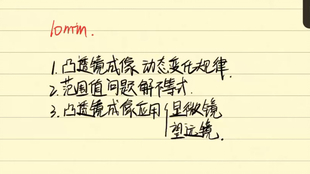 10min.
1.凸透镜成像 动态变化规律.
2.范围值问题 解不等式.
3.凸透镜成像应用{显微镜
望远镜.